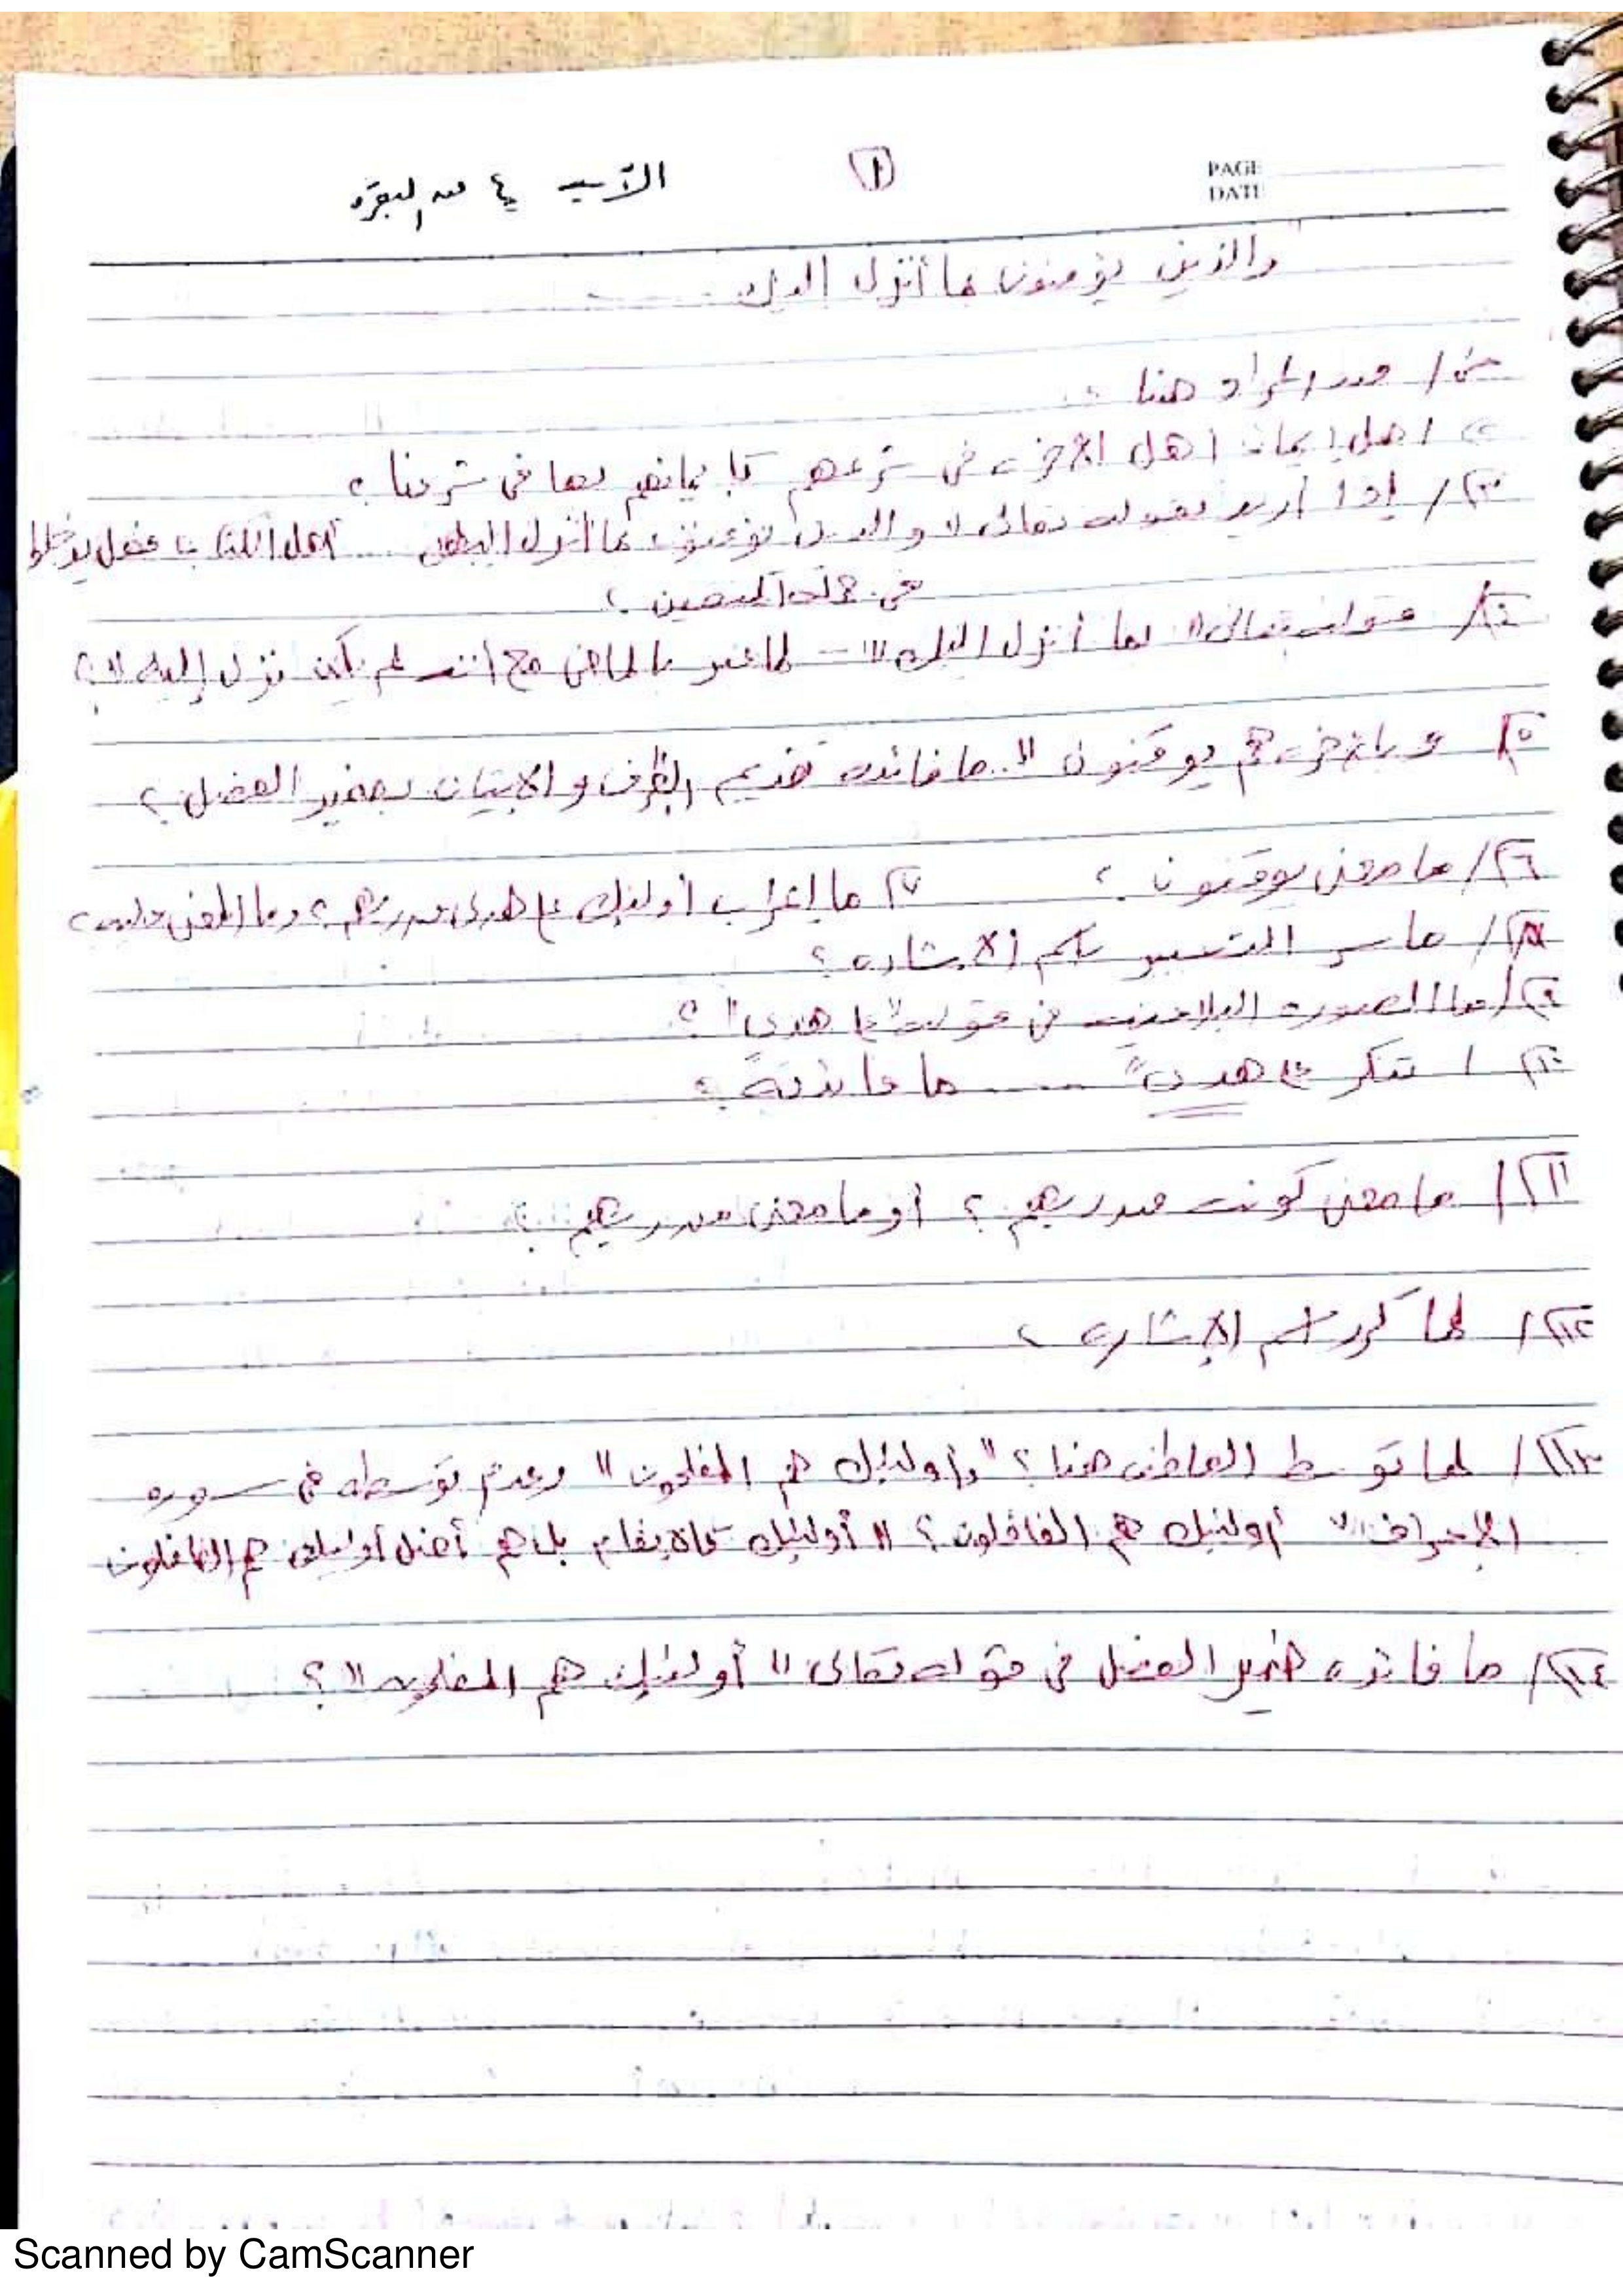 PAGE
DATE
١
الآية ٤ من البقرة
والذين يؤمنون بما أنزل إليك
س١/ من المراد هنا ؟
٢/ هل إيمان أهل الآخرة في شرعهم كإيمانهم بها في شرعنا ؟
س٣/ إذا أريد بقوله تعالى " والذين يؤمنون بما أنزل إليك .... أهل الكتاب فهل يدخلوا
في جملة المتقين ؟
س٤/ قوله تعالى " بما أنزل إليك " - لما عبر بالماضي مع أنه لم يكن نزل إليه " ؟
س٥/ وبالآخرة هم يوقنون " .. ما فائدة تقديم الظرف والإتيان بضمير الفصل ؟
س٦/ ما معنى يوقنون ؟ س٧ ما إعراب أولئك على هدى من ربهم ؟ وما المعنى عليه ؟
س٨/ ما سر التعبير باسم الإشارة ؟
س٩/ ما الصورة البلاغية في قوله " على هدى " ؟
س١٠/ تنكر على هدى " .... ما فائدته ؟
س١١/ ما معنى كونه من ربهم ؟ أو ما معنى من ربهم ؟
س١٢/ لما كرر اسم الإشارة ؟
س١٣/ لما توسط العاطف هنا ؟ " وأولئك هم المفلحون " وعدم توسطه في سورة
الأعراف " أولئك هم الغافلون ؟ " أولئك كالأنعام بل هم أضل أولئك هم الغافلون
س١٤/ ما فائدة ضمير الفصل في قوله تعالى " أولئك هم المفلحون " ؟
Scanned by CamScanner